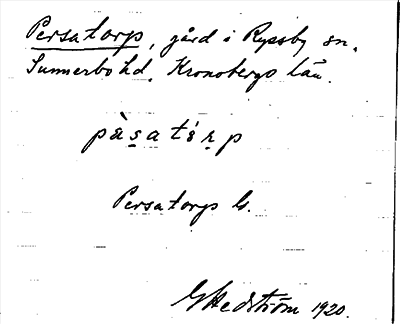 Persatorp, gård i Ryssby sn.
Sunnerbo hd. Kronobergs län.
pæ̀s̠a tǻr̠p
Persatorp G.
G Hedström 1920.